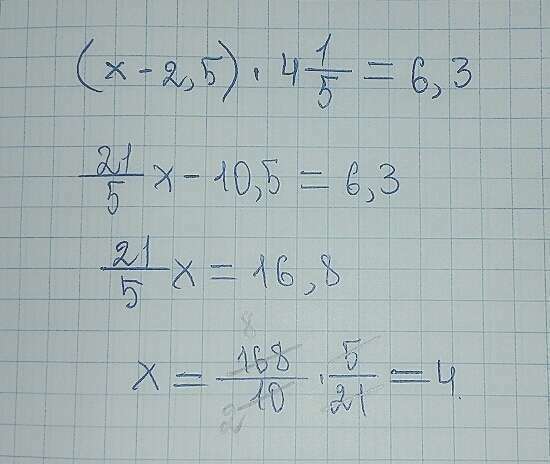 (x - 2,5) · 4 1/5 = 6,3
21/5 x - 10,5 = 6,3
21/5 x = 16,8
x = 168/10 · 5/21 = 4.
8
2